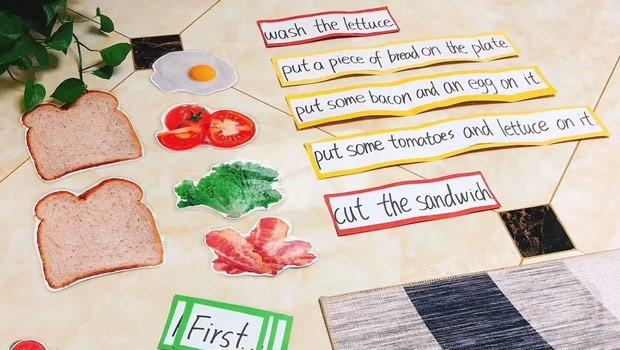 wash the lettuce
put a piece of bread on the plate
put some bacon and an egg on it.
put some tomatoes and lettuce on it.
cut the sandwich
First,